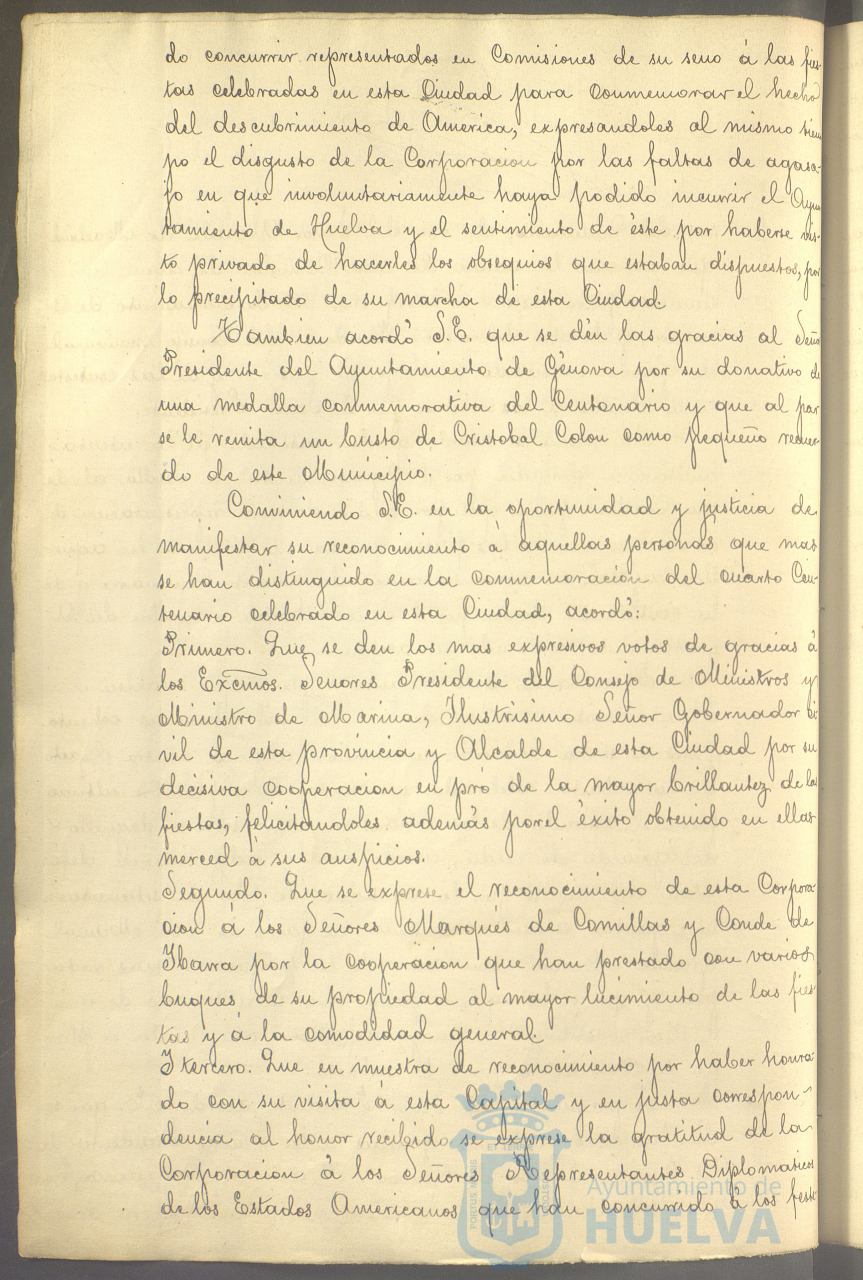 do concurrir representados en Comisiones de su seno á las fies-
tas celebradas en esta Ciudad para conmemorar el hecho
del descubrimiento de America, expresandoles al mismo tiem
po el disgusto de la Corporacion por las faltas de agasa-
jo en que involuntariamente haya podido incurrir el Ayun
tamiento de Huelva y el sentimiento de éste por haberse vis-
to privado de hacerles los obsequios que estaban dispuestos, por
lo precipitado de su marcha de esta Ciudad.
Tambien acordó S.E. que se dén las gracias al Señor
Presidente del Ayuntamiento de Génova por su donativo de
una medalla conmemorativa del Centenario y que al par
se le remita un busto de Cristobal Colon como pequeño recuer-
do de este Municipio.
Conviniendo S.E. en la oportunidad y justicia de
manifestar su reconocimiento á aquellas personas que mas
se han distinguido en la conmemoración del cuarto Cen-
tenario celebrado en esta Ciudad, acordó:
Primero. Que se den los mas expresivos votos de gracias á
los Excmos. Señores Presidente del Consejo de Ministros y
Ministro de Marina, Ilustrisimo Señor Gobernador ci
vil de esta provincia y Alcalde de esta Ciudad por su
decisiva cooperacion en pró de la mayor brillantez de las
fiestas, felicitandoles además por el éxito obtenido en ellas
merced á sus auspicios.
Segundo. Que se exprese el reconocimiento de esta Corpora-
cion á los Señores Marqués de Comillas y Conde de
Ibarra por la cooperacion que han prestado con varios
buques de su propiedad al mayor lucimiento de las fies-
tas y á la comodidad general.
I tercero. Que en muestra de reconocimiento por haber honra-
do con su visita á esta Capital y en justa correspon-
dencia al honor recibido se exprese la gratitud de la
Corporacion á los Señores Representantes Diplomaticos
de los Estados Americanos que han concurrido á los feste
Ayuntamiento de
HUELVA